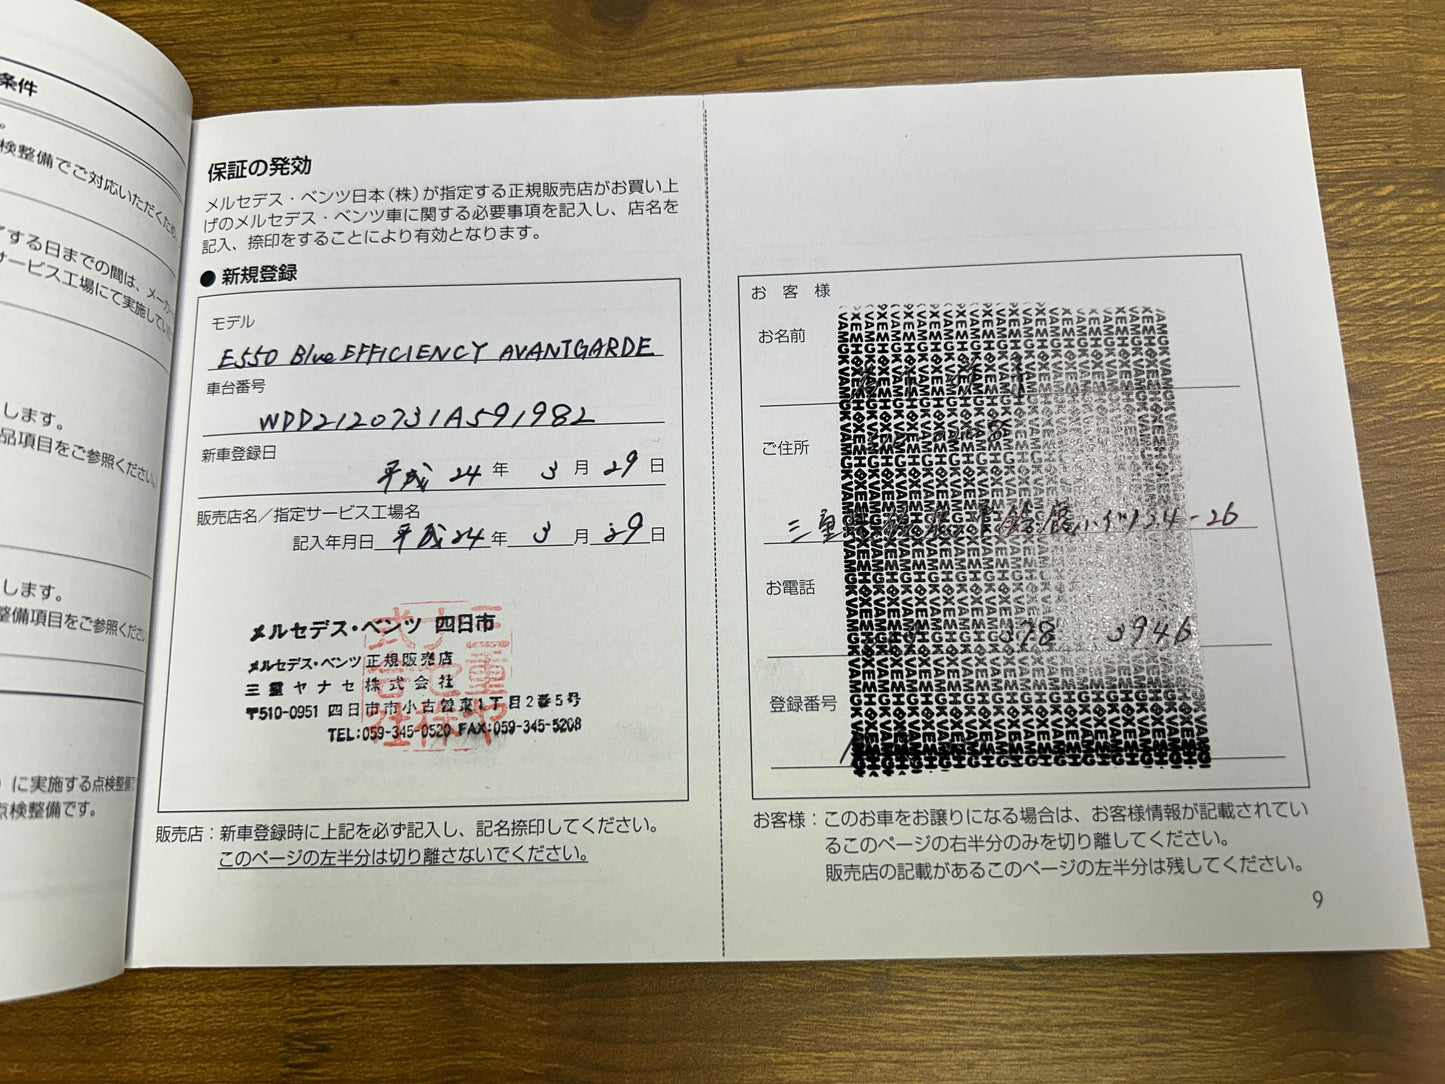 条件
検整備でご対応いただくため、
了する日までの間は、メーカー
サービス工場にて実施してい
します。
品項目をご参照ください。
します。
整備項目をご参照くださ
）に実施する点検整備で
点検整備です。
保証の発効
メルセデス・ベンツ日本（株）が指定する正規販売店がお買い上
げのメルセデス・ベンツ車に関する必要事項を記入し、店名を
記入、捺印をすることにより有効となります。
● 新規登録
モデル
E550 BlueEFFICIENCY AVANTGARDE
車台番号
WDD2120731A591982
新車登録日
平成 24 年 3 月 29 日
販売店名／指定サービス工場名
記入年月日 平成24 年 3 月 29 日
メルセデス・ベンツ 四日市
メルセデス・ベンツ 正規販売店
三重ヤナセ株式会社
〒510-0951 四日市市小古曽東1丁目2番5号
TEL:059-345-0520 FAX:059-345-5208
販売店：新車登録時に上記を必ず記入し、記名捺印してください。
このページの左半分は切り離さないでください。
お客様
お名前
ご住所
三重 24-26
お電話
378 3946
登録番号
お客様：このお車をお譲りになる場合は、お客様情報が記載されてい
るこのページの右半分のみを切り離してください。
販売店の記載があるこのページの左半分は残してください。
9